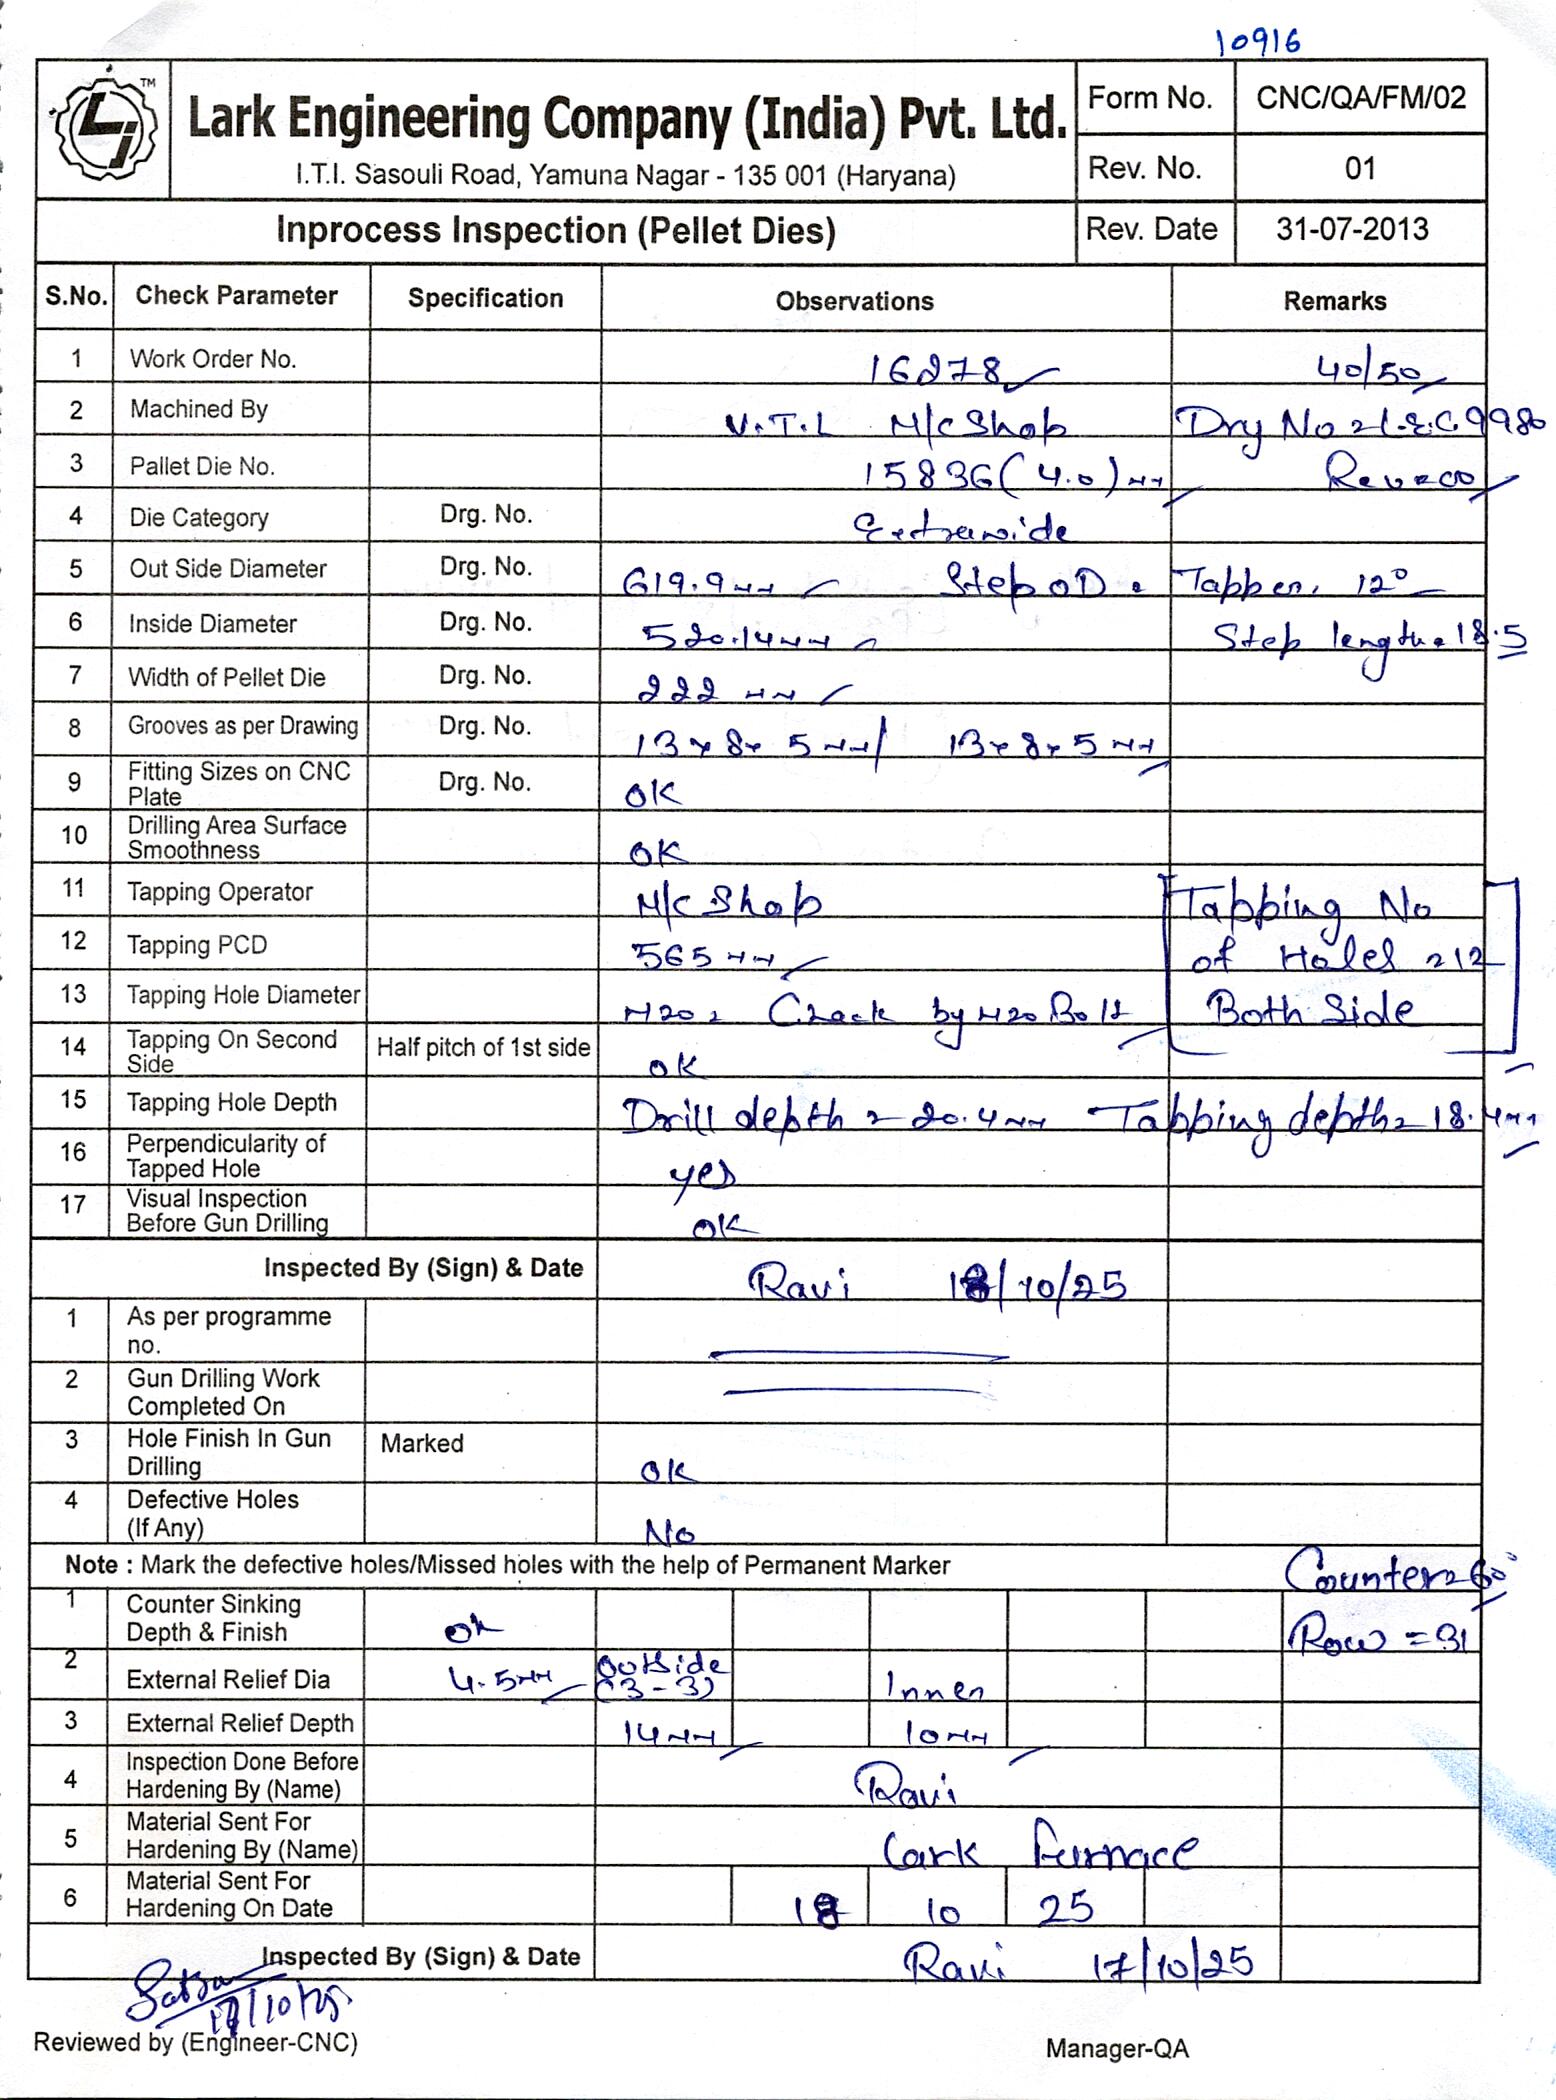 10916
TM
Lark Engineering Company (India) Pvt. Ltd.
I.T.I. Sasouli Road, Yamuna Nagar - 135 001 (Haryana)
Form No. CNC/QA/FM/02
Rev. No. 01
Inprocess Inspection (Pellet Dies) Rev. Date 31-07-2013
S.No. Check Parameter Specification Observations Remarks
1 Work Order No. 16278 40/50
2 Machined By V.T.L M/c Shop Drg No = L.E.C. 9980
3 Pallet Die No. 15836 (4.0) mm Rev = 00
4 Die Category Drg. No. Extrawide
5 Out Side Diameter Drg. No. 619.9mm Step OD = Tapper, 12°
6 Inside Diameter Drg. No. 520.14mm Step length = 18.5
7 Width of Pellet Die Drg. No. 222 mm
8 Grooves as per Drawing Drg. No. 13x8x5mm/ 13x8x5mm
9 Fitting Sizes on CNC Plate Drg. No. OK
10 Drilling Area Surface Smoothness OK
11 Tapping Operator M/c Shop Tapping No
12 Tapping PCD 565mm of Holes = 12
13 Tapping Hole Diameter M20 = Chack by M20 Bolt Both Side
14 Tapping On Second Side Half pitch of 1st side OK
15 Tapping Hole Depth Drill depth = 20.4mm Tapping depth = 18.4mm
16 Perpendicularity of Tapped Hole yes
17 Visual Inspection Before Gun Drilling OK
Inspected By (Sign) & Date Ravi 18/10/25
1 As per programme no.
2 Gun Drilling Work Completed On
3 Hole Finish In Gun Drilling Marked OK
4 Defective Holes (If Any) No
Note : Mark the defective holes/Missed holes with the help of Permanent Marker Counter = 60°
1 Counter Sinking Depth & Finish OK Row = 31
2 External Relief Dia 4.5mm Outside (3-3) Inner
3 External Relief Depth 14mm 10mm
4 Inspection Done Before Hardening By (Name) Ravi
5 Material Sent For Hardening By (Name) Lark Furnace
6 Material Sent For Hardening On Date 10 25
Inspected By (Sign) & Date Ravi 17/10/25
Reviewed by (Engineer-CNC) Manager-QA